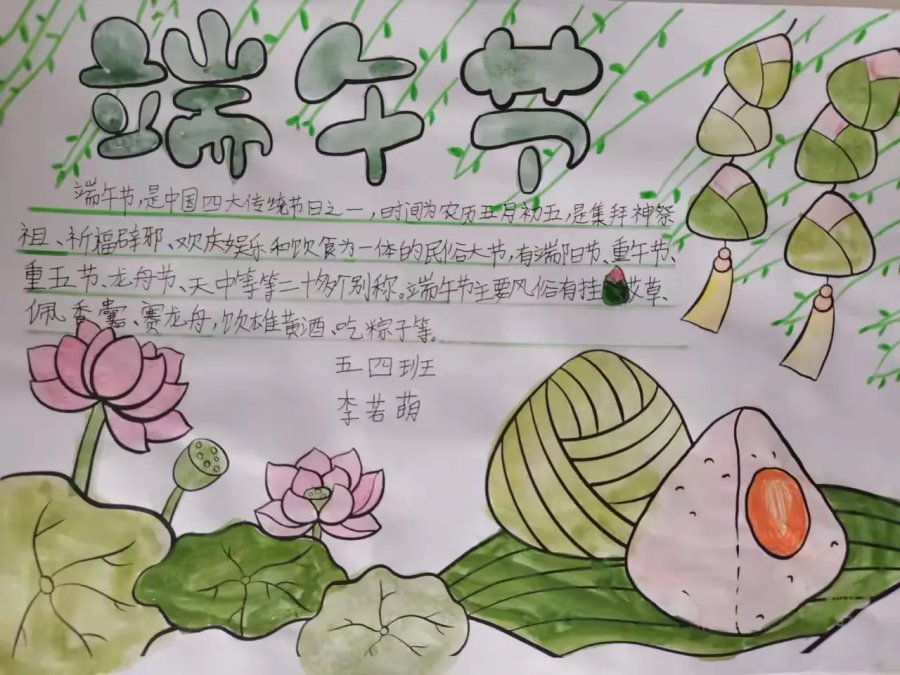 端午节
端午节,是中国四大传统节日之一,时间为农历五月初五,是集拜神祭
祖、祈福辟邪、欢庆娱乐和饮食为一体的民俗大节,有端阳节、重午节、
重五节、龙舟节、天中等等二十多个别称。端午节主要风俗有挂艾草、
佩香囊、赛龙舟,饮雄黄酒、吃粽子等。
五四班
李若萌